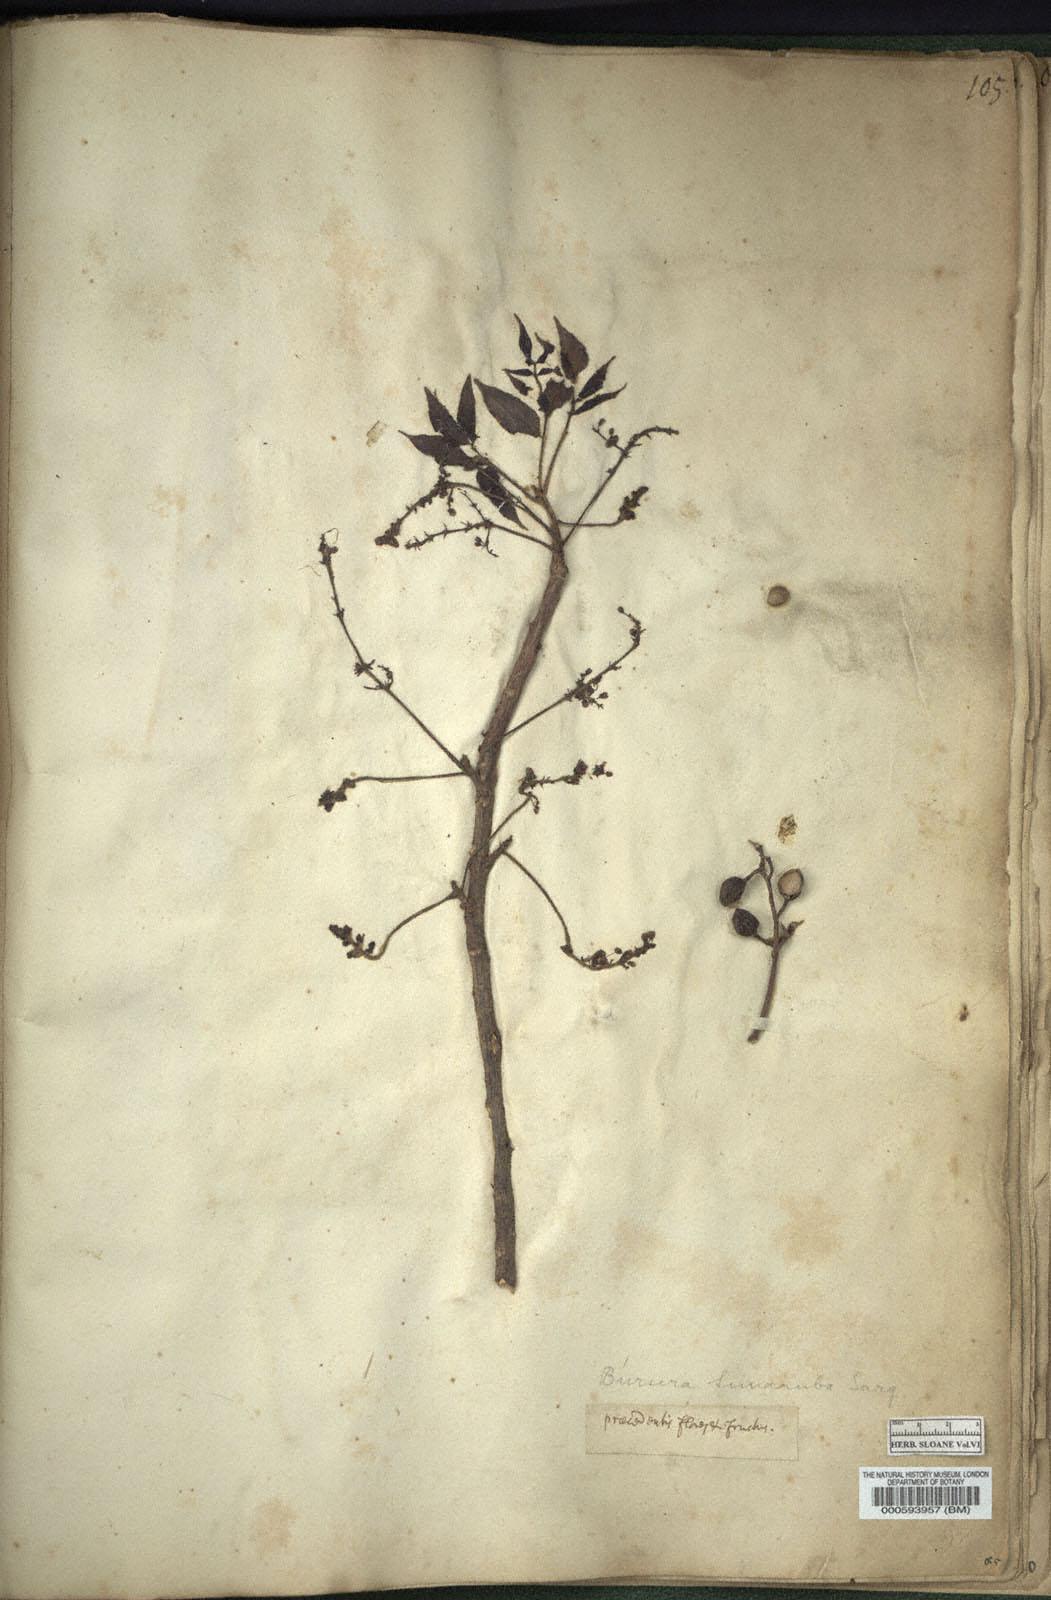 105.
Bursera Simaruba Sarg
præcedentis flores & fructus.
HERB. SLOANE Vol.VI
THE NATURAL HISTORY MUSEUM, LONDON
DEPARTMENT OF BOTANY
000593957 (BM)